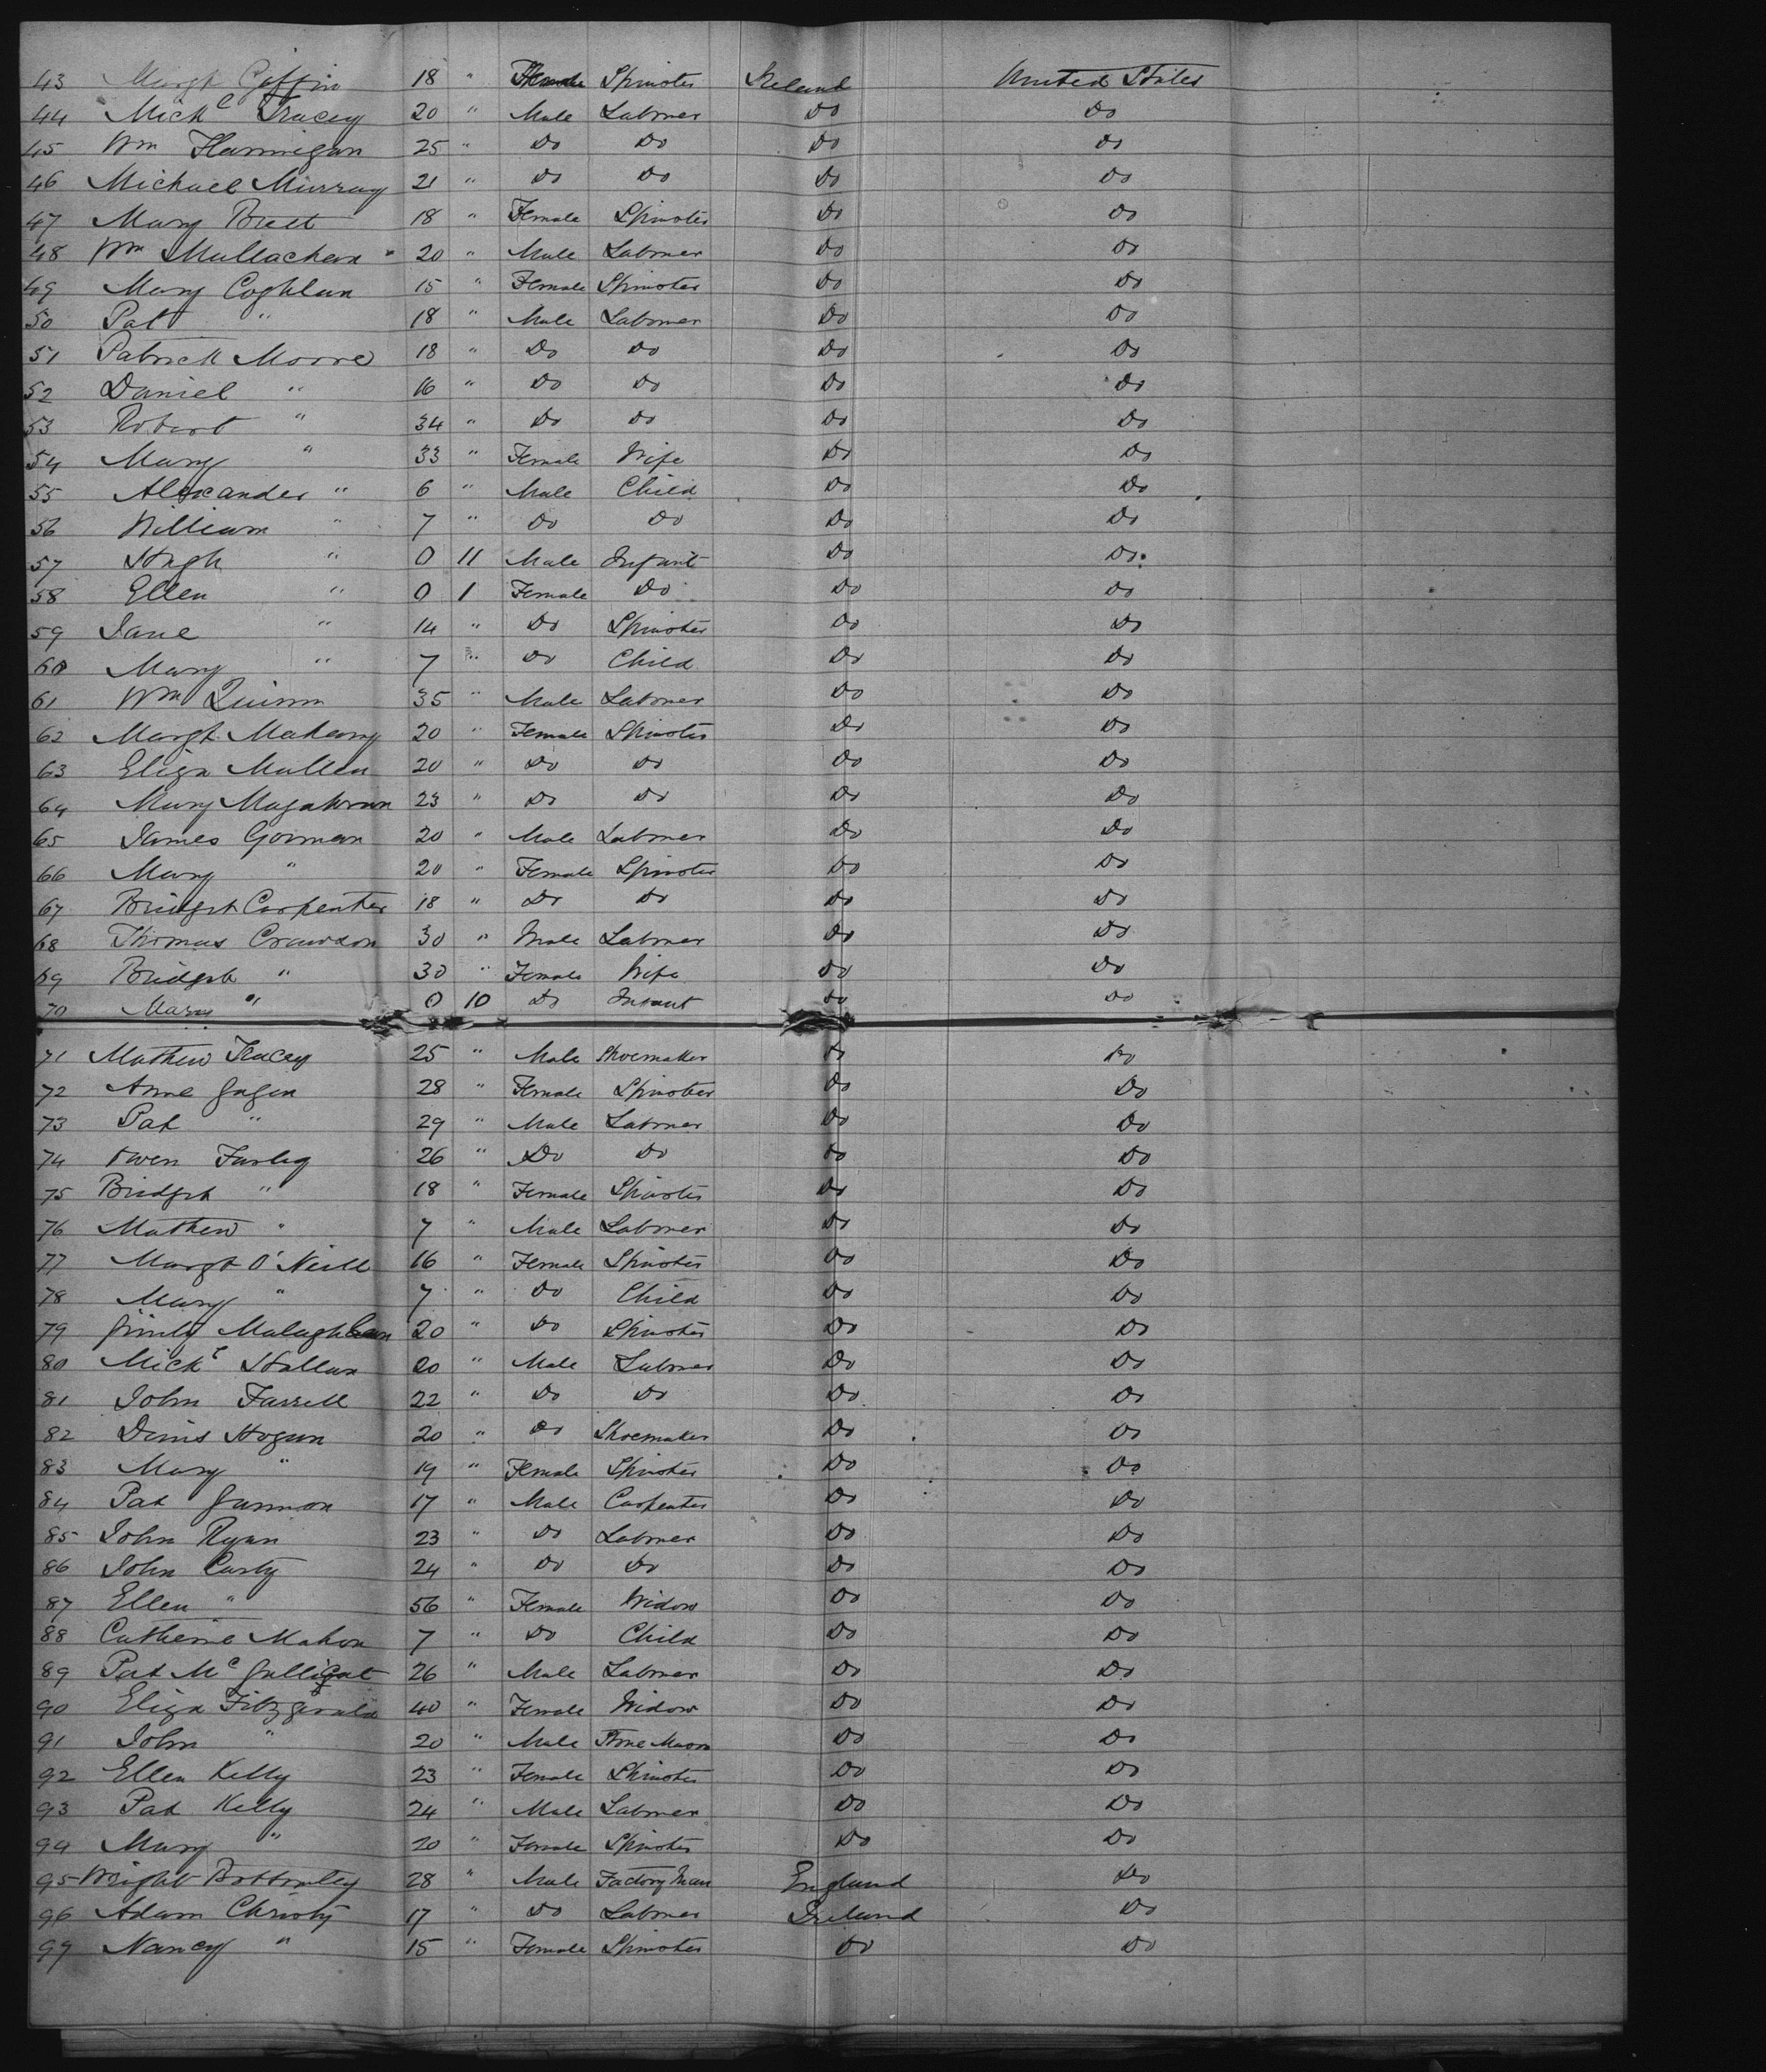 43 Margt Goffin 18 " Female Spinster Ireland United States
44 Michl Tracey 20 " Male Labourer Do Do
45 Wm Flannigan 25 " Do Do Do Do
46 Michael Murray 21 " Do Do Do Do
47 Mary Brett 18 " Female Spinster Do Do
48 Wm Mullachan 20 " Male Labourer Do Do
49 Mary Coghlan 15 " Female Spinster Do Do
50 Pat " 18 " Male Labourer Do Do
51 Patrick Moore 18 " Do Do Do Do
52 Daniel " 16 " Do Do Do Do
53 Robert " 34 " Do Do Do Do
54 Mary " 33 " Female Wife Do Do
55 Alexander " 6 " Male Child Do Do
56 William " 7 " Do Do Do Do
57 Hugh " 0 11 Male Infant Do Do
58 Ellen " 0 1 Female Do Do Do
59 Jane " 14 " Do Spinster Do Do
60 Mary " 7 " Do Child Do Do
61 Wm Quinn 35 " Male Labourer Do Do
62 Margt Makeany 20 " Female Spinster Do Do
63 Eliza Mullen 20 " Do Do Do Do
64 Mary Magahran 23 " Do Do Do Do
65 James Gorman 20 " Male Labourer Do Do
66 Mary " 20 " Female Spinster Do Do
67 Bridget Carpenter 18 " Do Do Do Do
68 Thomas Crawdon 30 " Male Labourer Do Do
69 Bridget " 30 " Female Wife Do Do
70 Mary " 0 10 Do Infant Do Do
71 Mathew Tracey 25 " Male Shoemaker Do Do
72 Anne Gagen 28 " Female Spinster Do Do
73 Pat " 29 " Male Labourer Do Do
74 Owen Farley 26 " Do Do Do Do
75 Bridget " 18 " Female Spinster Do Do
76 Mathew " 7 " Male Labourer Do Do
77 Margt O'Neill 16 " Female Spinster Do Do
78 Mary " 7 " Do Child Do Do
79 Malaghlan 20 " Do Spinster Do Do
80 Michl Hallan 20 " Male Labourer Do Do
81 John Farrell 22 " Do Do Do Do
82 Dinis Hogan 20 " Do Shoemaker Do Do
83 Mary " 19 " Female Spinster Do Do
84 Pat Gannon 17 " Male Carpenter Do Do
85 John Ryan 23 " Do Labourer Do Do
86 John Carty 24 " Do Do Do Do
87 Ellen " 56 " Female Widow Do Do
88 Catherine Mahon 7 " Do Child Do Do
89 Pat Mc Gulligat 26 " Male Labourer Do Do
90 Eliza Fitzgerald 40 " Female Widow Do Do
91 John " 20 " Male Stone Mason Do Do
92 Ellen Kelly 23 " Female Spinster Do Do
93 Pat Kelly 24 " Male Labourer Do Do
94 Mary " 20 " Female Spinster Do Do
95 Wright Bottomley 28 " Male Factory Man England Do
96 Adam Christy 17 " Do Labourer Ireland Do
97 Nancy " 15 " Female Spinster Do Do